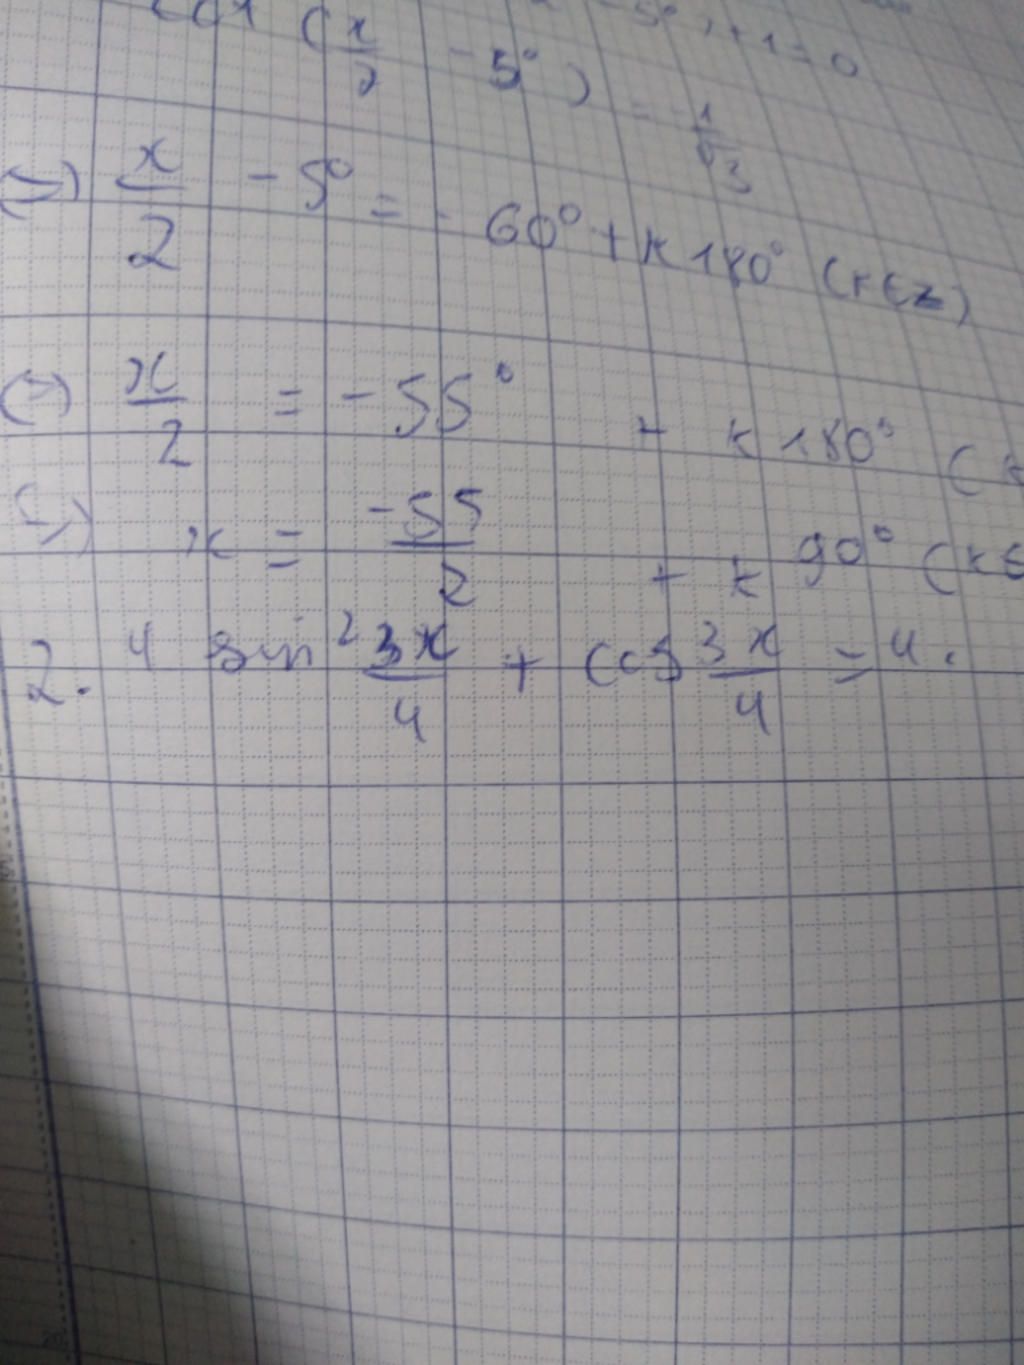 cot (x/2 - 5°) = -1/√3
(=) x/2 - 5° = -60° + k180° (k∈Z)
(=) x/2 = -55° + k180° (k
(=) x = -55/2 + k90° (k∈
2. 4 sin² 3x/4 + cos 3x/4 = 4.